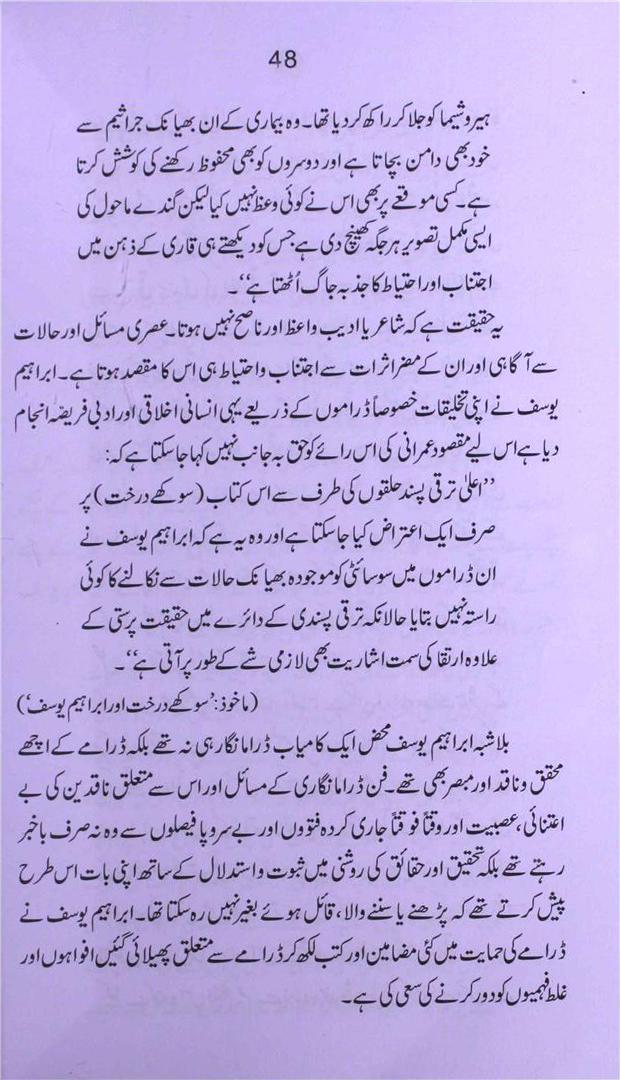 48
ہیروشیما کو جلا کر راکھ کر دیا تھا۔ وہ بیماری کے ان بھیانک جراثیم سے
خود بھی دامن بچاتا ہے اور دوسروں کو بھی محفوظ رکھنے کی کوشش کرتا
ہے۔ کسی موقعے پر بھی اس نے کوئی وعظ نہیں کیا لیکن گندے ماحول کی
ایسی مکمل تصویر ہر جگہ کھینچ دی ہے جس کو دیکھتے ہی قاری کے ذہن میں
اجتناب اور احتیاط کا جذبہ جاگ اُٹھتا ہے‘‘
یہ حقیقت ہے کہ شاعر یا ادیب واعظ اور ناصح نہیں ہوتا۔ عصری مسائل اور حالات
سے آگاہی اور ان کے مضر اثرات سے اجتناب و احتیاط ہی اس کا مقصد ہوتا ہے۔ ابراہیم
یوسف نے اپنی تخلیقات خصوصاً ڈراموں کے ذریعے یہی انسانی اخلاقی اور ادبی فریضہ انجام
دیا ہے اس لیے مقصود عمرانی کی اس رائے کو حق بہ جانب نہیں کہا جا سکتا ہے کہ:
’’اعلیٰ ترقی پسند حلقوں کی طرف سے اس کتاب (سوکھے درخت) پر
صرف ایک اعتراض کیا جا سکتا ہے اور وہ یہ ہے کہ ابراہیم یوسف نے
ان ڈراموں میں سوسائٹی کو موجودہ بھیانک حالات سے نکالنے کا کوئی
راستہ نہیں بتایا حالانکہ ترقی پسندی کے دائرے میں حقیقت پرستی کے
علاوہ ارتقا کی سمت اشاریت بھی لازمی شے کے طور پر آتی ہے‘‘۔
(ماخوذ: ’سوکھے درخت اور ابراہیم یوسف‘)
بلاشبہ ابراہیم یوسف محض ایک کامیاب ڈراما نگار ہی نہ تھے بلکہ ڈرامے کے اچھے
محقق و ناقد اور مبصر بھی تھے۔ فن ڈراما نگاری کے مسائل اور اس سے متعلق ناقدین کی بے
اعتنائی، عصبیت اور وقتاً فوقتاً جاری کردہ فتووں اور بے سروپا فیصلوں سے وہ نہ صرف باخبر
رہتے تھے بلکہ تحقیق اور حقائق کی روشنی میں ثبوت و استدلال کے ساتھ اپنی بات اس طرح
پیش کرتے تھے کہ پڑھنے یا سننے والا، قائل ہوئے بغیر نہیں رہ سکتا تھا۔ ابراہیم یوسف نے
ڈرامے کی حمایت میں کئی مضامین اور کتب لکھ کر ڈرامے سے متعلق پھیلائی گئیں افواہوں اور
غلط فہمیوں کو دور کرنے کی سعی کی ہے۔